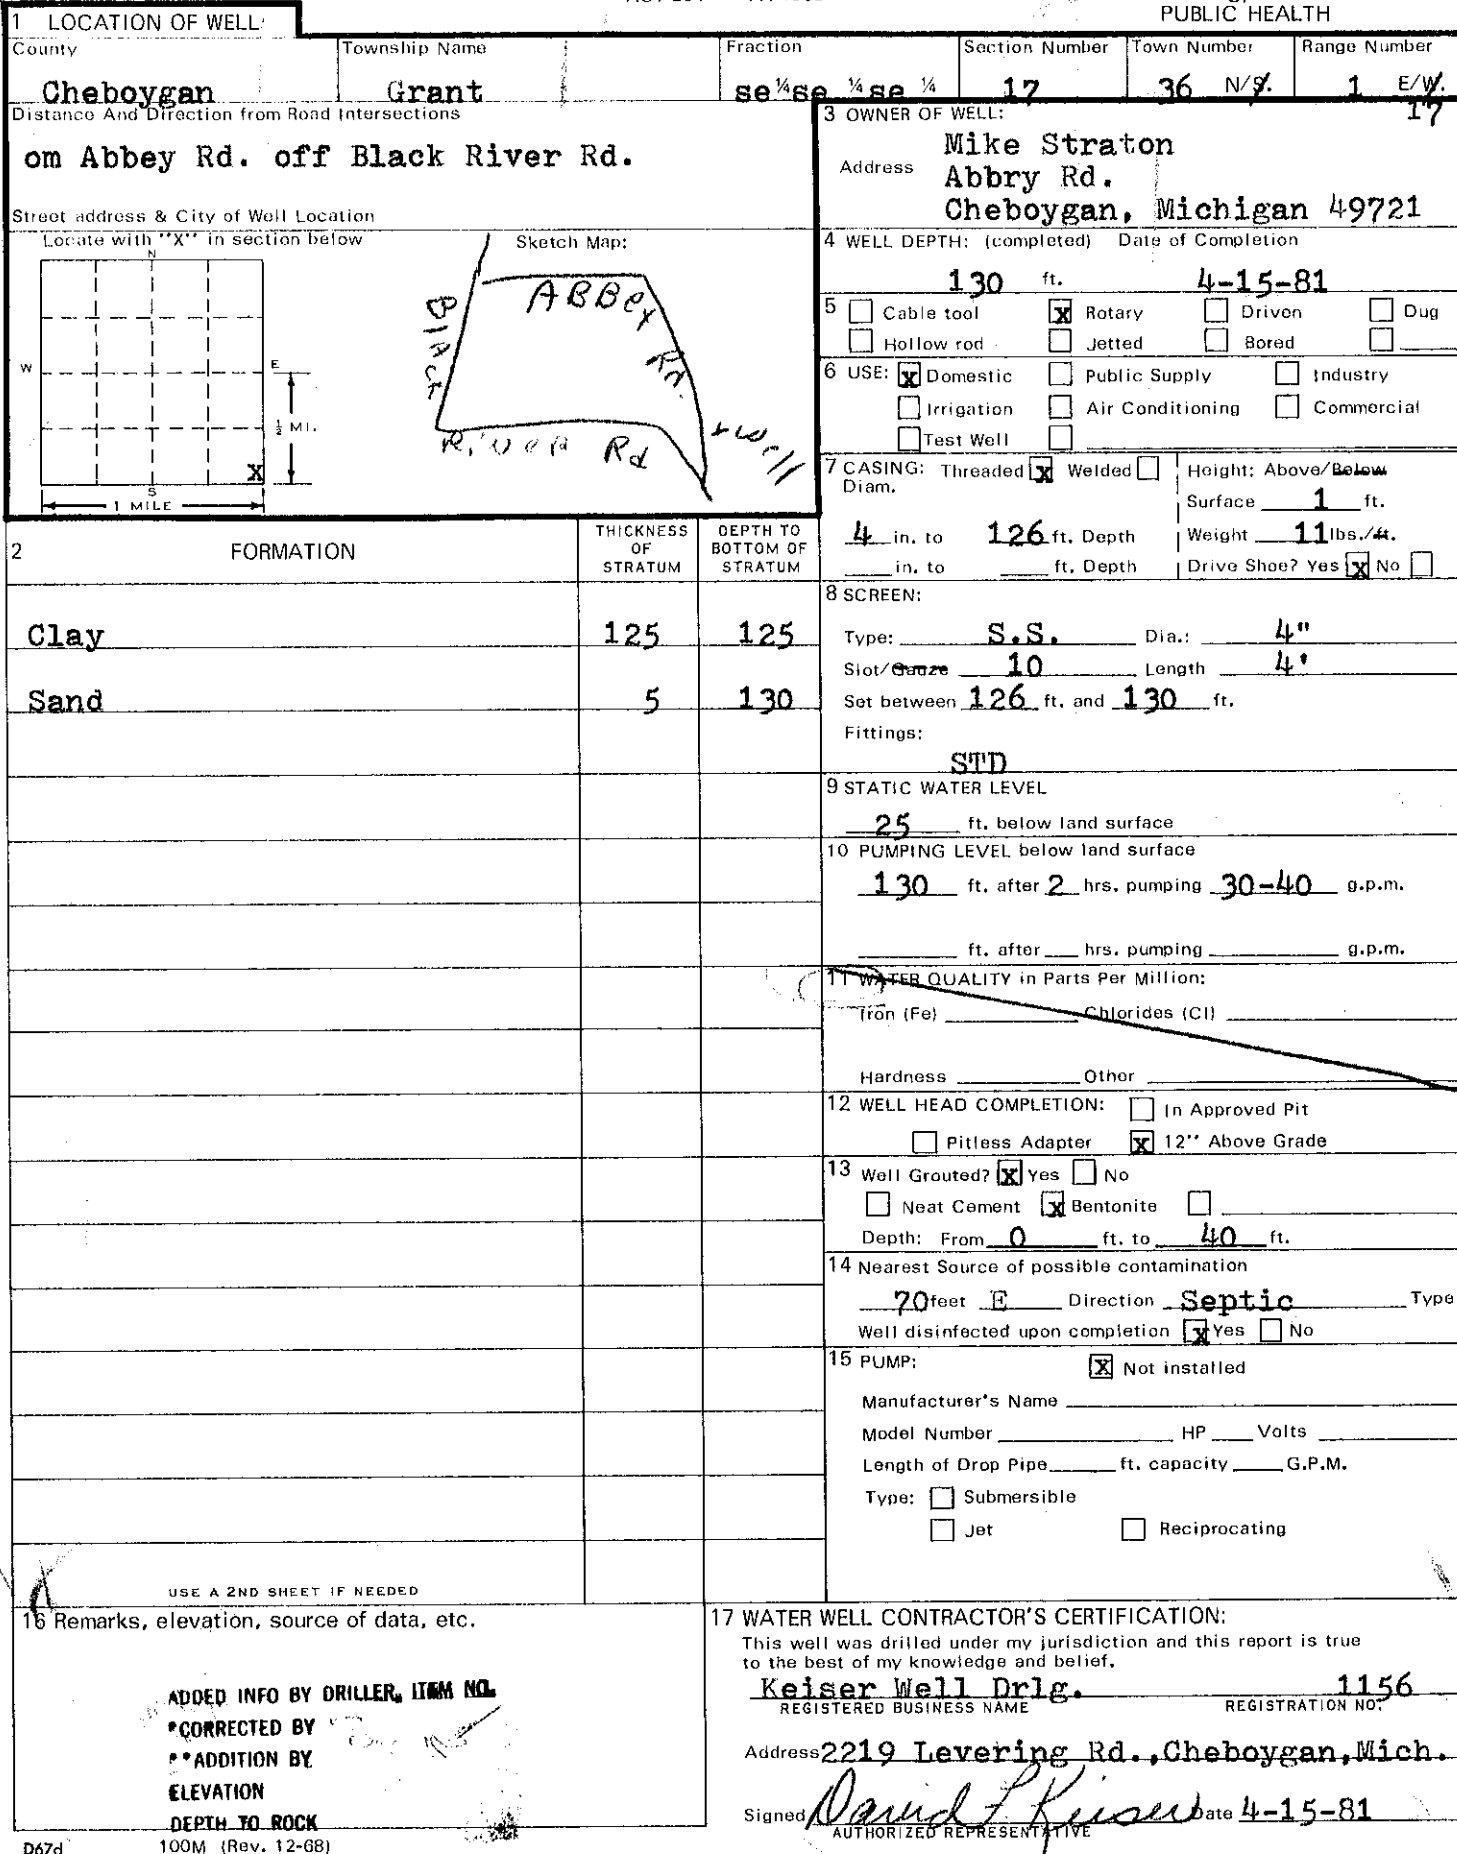 PUBLIC HEALTH
1 LOCATION OF WELL
County
Township Name
Fraction
Section Number
Town Number
Range Number
Cheboygan
Grant
se ¼ se ¼ se ¼
17
36 N/S.
1 E/W.
17
Distance And Direction from Road Intersections
om Abbey Rd. off Black River Rd.
Street address & City of Well Location
Locate with "X" in section below
Sketch Map:
N
W
E
½ MI.
X
S
1 MILE
ABBey Rd.
BlAck
River Rd
+ Well
3 OWNER OF WELL:
Mike Straton
Address
Abbry Rd.
Cheboygan, Michigan 49721
4 WELL DEPTH: (completed) Date of Completion
130 ft. 4-15-81
5 Cable tool X Rotary Driven Dug
Hollow rod Jetted Bored
6 USE: X Domestic Public Supply Industry
Irrigation Air Conditioning Commercial
Test Well
7 CASING: Threaded X Welded Height: Above/Below
Diam.
Surface 1 ft.
4 in. to 126 ft. Depth Weight 11 lbs./ft.
in. to ft. Depth Drive Shoe? Yes X No
2 FORMATION
THICKNESS OF STRATUM
DEPTH TO BOTTOM OF STRATUM
Clay 125 125
Sand 5 130
8 SCREEN:
Type: S.S. Dia.: 4"
Slot/Gauze 10 Length 4'
Set between 126 ft. and 130 ft.
Fittings:
STD
9 STATIC WATER LEVEL
25 ft. below land surface
10 PUMPING LEVEL below land surface
130 ft. after 2 hrs. pumping 30-40 g.p.m.
ft. after hrs. pumping g.p.m.
11 WATER QUALITY in Parts Per Million:
Iron (Fe) Chlorides (Cl)
Hardness Other
12 WELL HEAD COMPLETION: In Approved Pit
Pitless Adapter X 12'' Above Grade
13 Well Grouted? X Yes No
Neat Cement X Bentonite
Depth: From 0 ft. to 40 ft.
14 Nearest Source of possible contamination
70 feet E Direction Septic Type
Well disinfected upon completion X Yes No
15 PUMP: X Not installed
Manufacturer's Name
Model Number HP Volts
Length of Drop Pipe ft. capacity G.P.M.
Type: Submersible
Jet Reciprocating
USE A 2ND SHEET IF NEEDED
16 Remarks, elevation, source of data, etc.
ADDED INFO BY DRILLER, ITEM NO.
*CORRECTED BY
**ADDITION BY
ELEVATION
DEPTH TO ROCK
D67d 100M (Rev. 12-68)
17 WATER WELL CONTRACTOR'S CERTIFICATION:
This well was drilled under my jurisdiction and this report is true
to the best of my knowledge and belief.
Keiser Well Drlg. 1156
REGISTERED BUSINESS NAME REGISTRATION NO.
Address 2219 Levering Rd.,Cheboygan,Mich.
Signed David L Keiser Date 4-15-81
AUTHORIZED REPRESENTATIVE